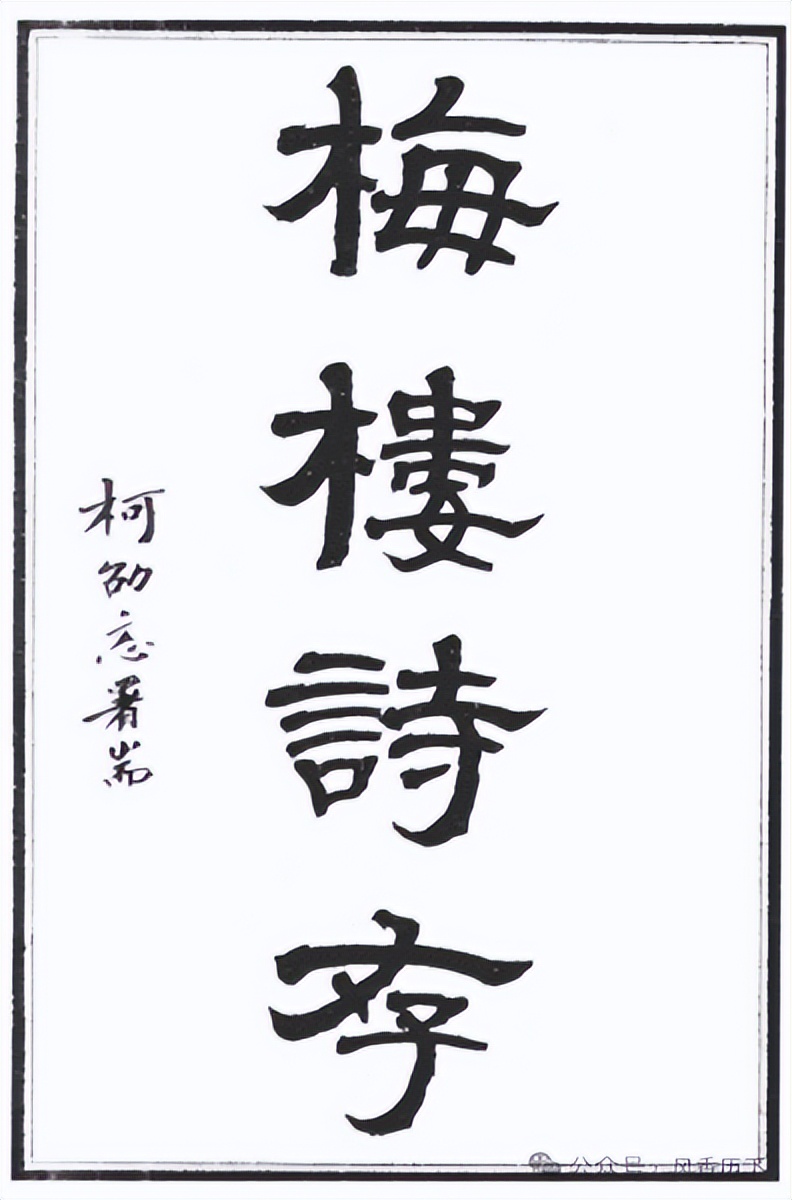 梅樓詩存
柯劭忞署耑
公众号·风香历下